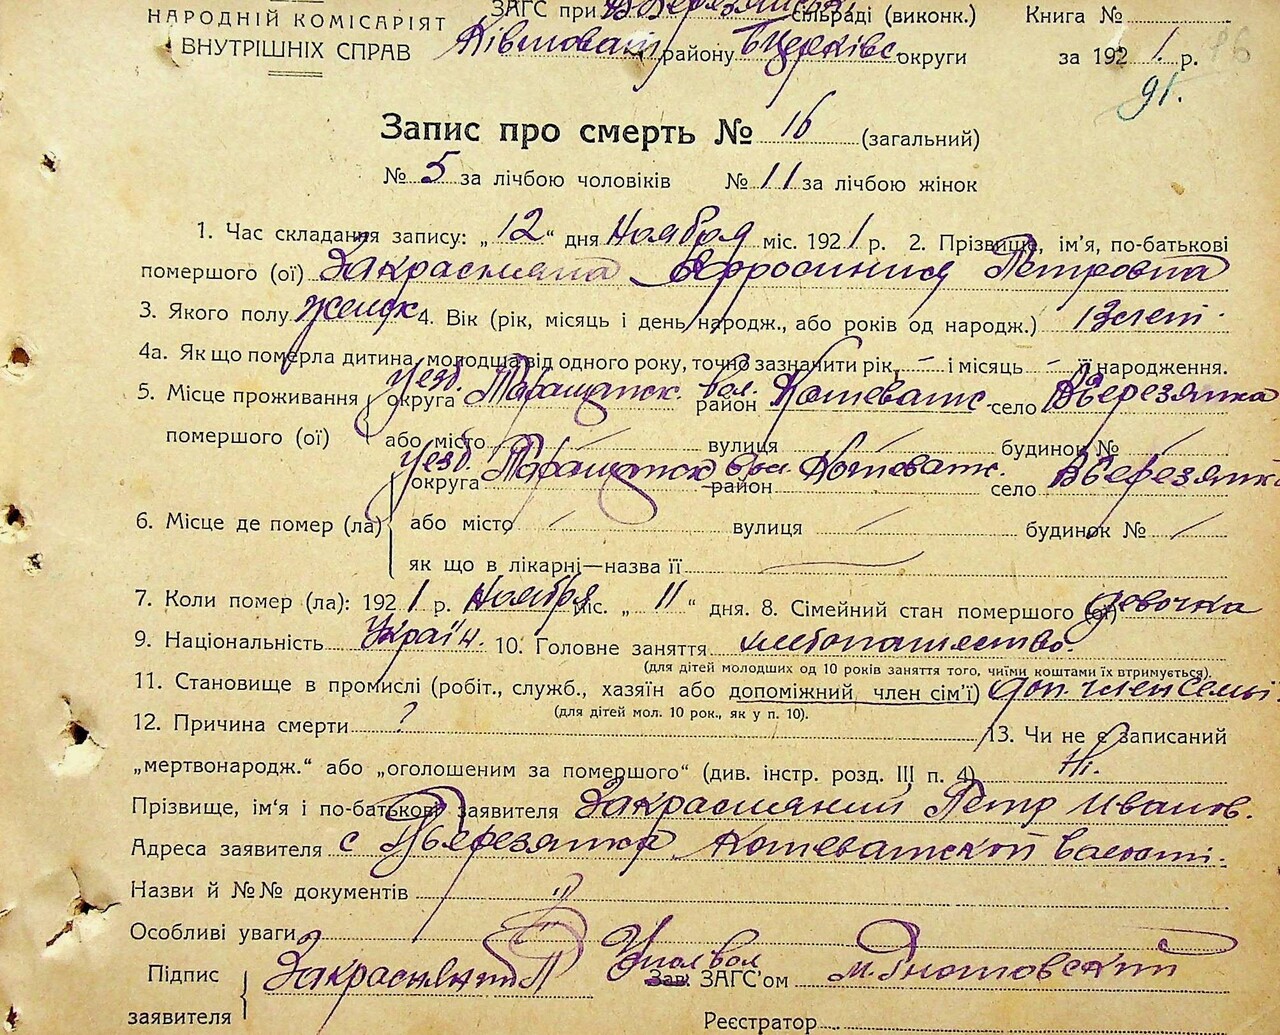 НАРОДНІЙ КОМІСАРІЯТ ЗАГС при сільраді (виконк.) Книга №
ВНУТРІШНІХ СПРАВ району БЦерківс округи за 1921 р.
91.
Запис про смерть № 16 (загальний)
№ 5 за лічбою чоловіків № 11 за лічбою жінок
1. Час складання запису: „12“ дня Ноября міс. 1921 р. 2. Прізвище, ім'я, по-батькові
помершого (ої) Закрасняна Ефросиния Петровна
3. Якого полу женск 4. Вік (рік, місяць і день народж., або років од народж.)
4а. Як що померла дитина, молодша від одного року, точно зазначити рік, — і місяць — її народження.
5. Місце проживання уезд. округа Таращанск. вол. район село ВБерезянка
помершого (ої) або місто — вулиця — будинок № —
уезд. округа Таращанск вол. район село ВБерезянка
6. Місце де помер (ла) або місто — вулиця — будинок № —
як що в лікарні—назва її —
7. Коли помер (ла): 1921 р. Ноября міс. „11“ дня. 8. Сімейний стан помершого (ої) девочка
9. Національність Україн. 10. Головне заняття хлебопашество.
(для дітей молодших од 10 років заняття того, чиїми коштами їх втримується).
11. Становище в промислі (робіт., служб., хазяїн або допоміжний член сім'ї) доп. член семьі
(для дітей мол. 10 рок., як у п. 10).
12. Причина смерти ? 13. Чи не є записаний
„мертвонародж.“ або „оголошеним за помершого“ (див. інстр. розд. III п. 4) Ні.
Прізвище, ім'я і по-батькові заявителя Закрасняний Петр Иванов.
Адреса заявителя с ВБерезянка
Назви й №№ документів „
Особливі уваги
Підпис Закрасняний П Зав. ЗАГС'ом
заявителя Реєстратор